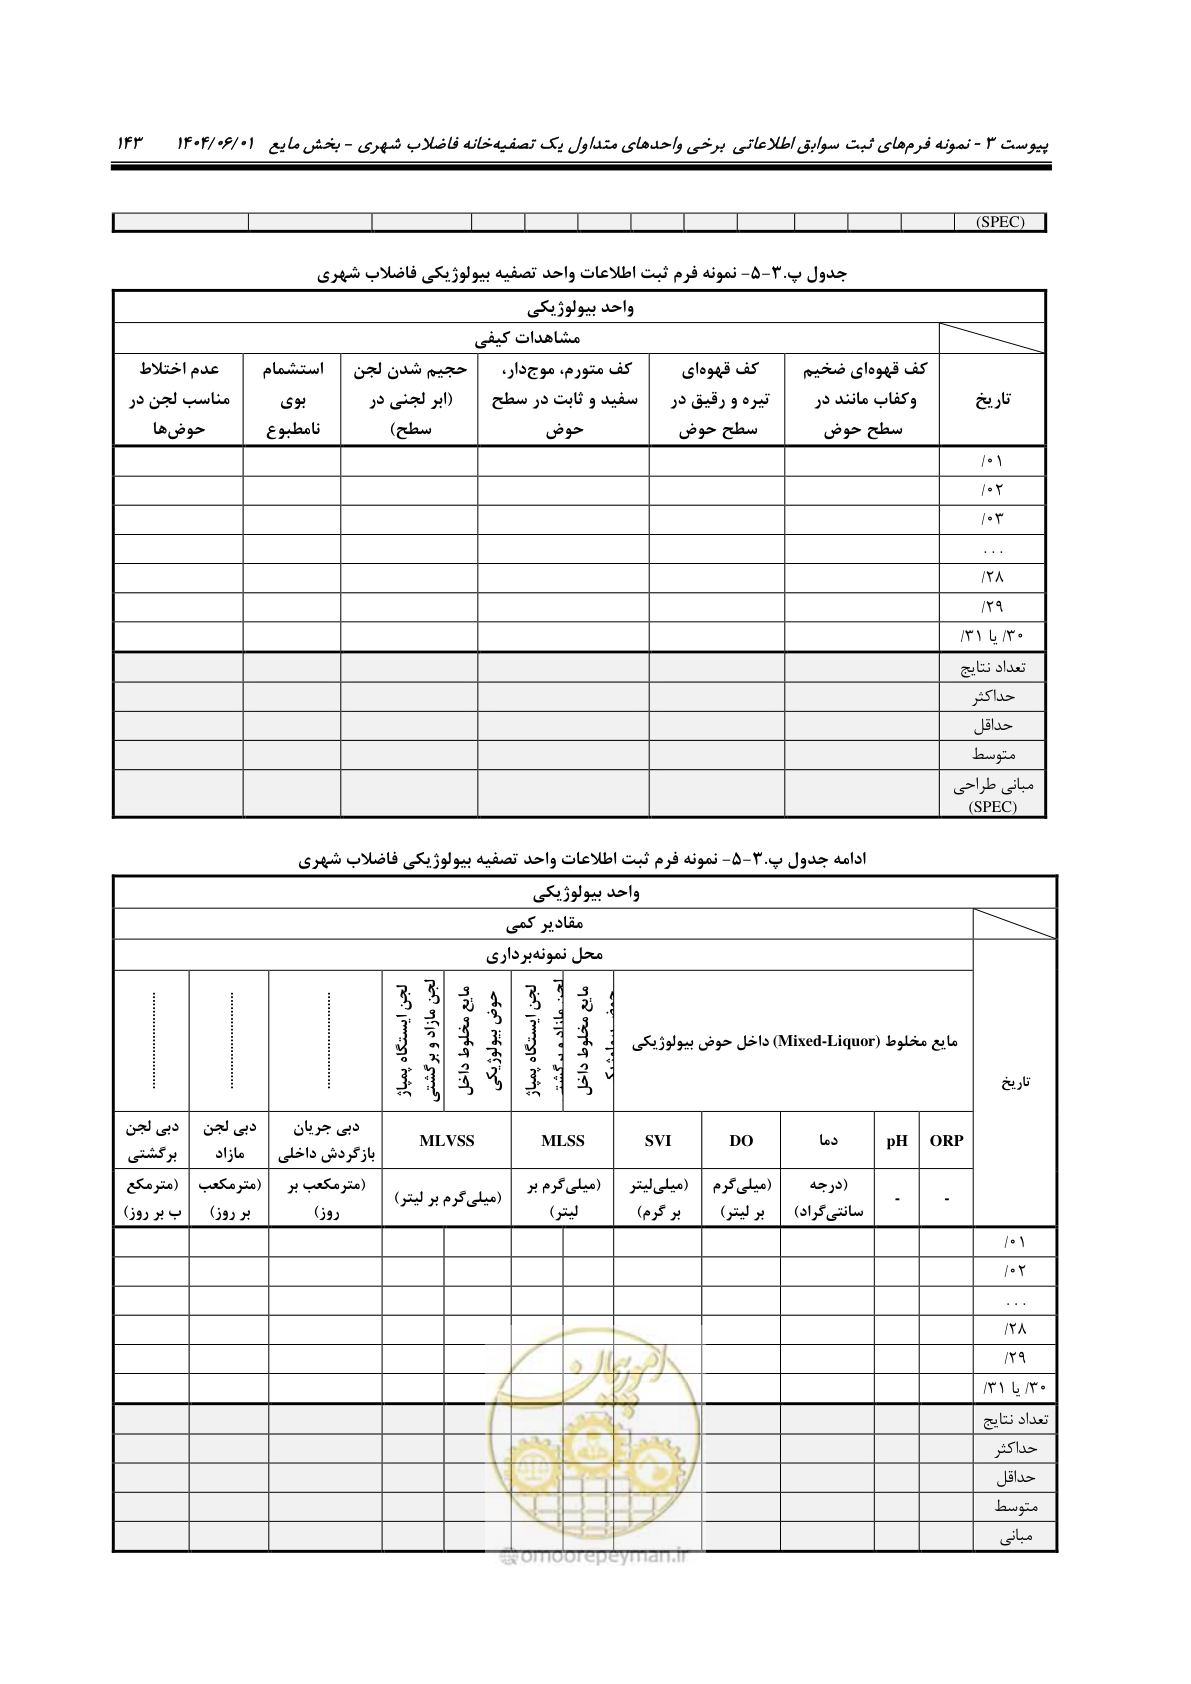 پیوست ۳ - نمونه فرم‌های ثبت سوابق اطلاعاتی برخی واحدهای متداول یک تصفیه‌خانه فاضلاب شهری – بخش مایع ۱۴۰۴/۰۶/۰۱ ۱۴۳
(SPEC)
جدول پ.۳-۵- نمونه فرم ثبت اطلاعات واحد تصفیه بیولوژیکی فاضلاب شهری
واحد بیولوژیکی
مشاهدات کیفی
تاریخ
کف قهوه‌ای ضخیم
وکفاب مانند در
سطح حوض
کف قهوه‌ای
تیره و رقیق در
سطح حوض
کف متورم، موج‌دار،
سفید و ثابت در سطح
حوض
حجیم شدن لجن
(ابر لجنی در
سطح)
استشمام
بوی
نامطبوع
عدم اختلاط
مناسب لجن در
حوض‌ها
/۰۱
/۰۲
/۰۳
...
/۲۸
/۲۹
/۳۰ یا /۳۱
تعداد نتایج
حداکثر
حداقل
متوسط
مبانی طراحی
(SPEC)
ادامه جدول پ.۳-۵- نمونه فرم ثبت اطلاعات واحد تصفیه بیولوژیکی فاضلاب شهری
واحد بیولوژیکی
مقادیر کمی
محل نمونه‌برداری
تاریخ
مایع مخلوط (Mixed-Liquor) داخل حوض بیولوژیکی
مایع مخلوط داخل
حوض بیولوژیکی
لجن ایستگاه پمپاژ
لجن مازاد و برگشتی
مایع مخلوط داخل
حوض بیولوژیکی
لجن ایستگاه پمپاژ
لجن مازاد و برگشتی
........................
........................
........................
ORP
pH
دما
DO
SVI
MLSS
MLVSS
دبی جریان
بازگردش داخلی
دبی لجن
مازاد
دبی لجن
برگشتی
-
-
(درجه
سانتی‌گراد)
(میلی‌گرم
بر لیتر)
(میلی‌لیتر
بر گرم)
(میلی‌گرم بر
لیتر)
(میلی‌گرم بر لیتر)
(مترمکعب بر
روز)
(مترمکعب
بر روز)
(مترمکع
ب بر روز)
/۰۱
/۰۲
...
/۲۸
/۲۹
/۳۰ یا /۳۱
تعداد نتایج
حداکثر
حداقل
متوسط
مبانی
امور پیمان
@omoorepeyman.ir